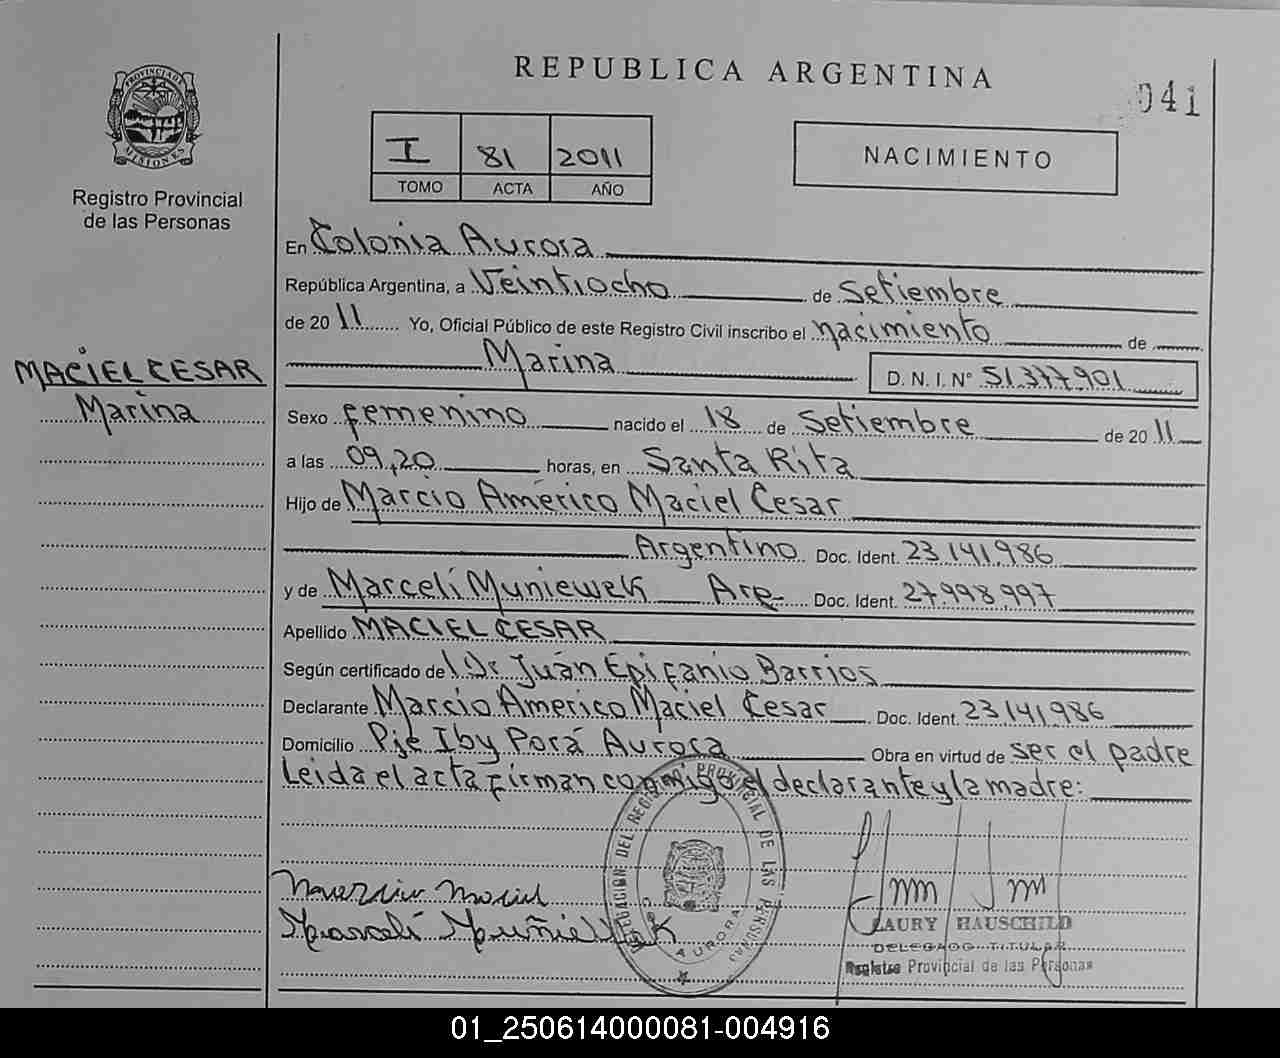 REPUBLICA ARGENTINA
041
PROVINCIA DE MISIONES
Registro Provincial
de las Personas
I 81 2011
TOMO ACTA AÑO
NACIMIENTO
En Colonia Aurora
República Argentina, a Veintiocho de Setiembre
de 2011 Yo, Oficial Público de este Registro Civil inscribo el nacimiento de
Marina
D. N. I. N° 51.377.901
MACIEL CESAR
Marina
Sexo femenino nacido el 18 de Setiembre de 2011
a las 09,20 horas, en Santa Rita
Hijo de Marcio Américo Maciel Cesar
Argentino Doc. Ident. 23.141.986
y de Marcelí Muniewek Arg Doc. Ident. 27.998.997
Apellido MACIEL CESAR
Según certificado del Dr Juán Epifanio Barrios
Declarante Marcio Americo Maciel Cesar Doc. Ident. 23141986
Domicilio Pje Iby Porá Aurora Obra en virtud de ser el padre
Leida el acta firman conmigo el declarante y la madre:
DELEGACION DEL REGISTRO PROVINCIAL DE LAS PERSONAS
AURORA
LAURY HAUSCHILD
DELEGADO TITULAR
Registro Provincial de las Personas
01_250614000081-004916